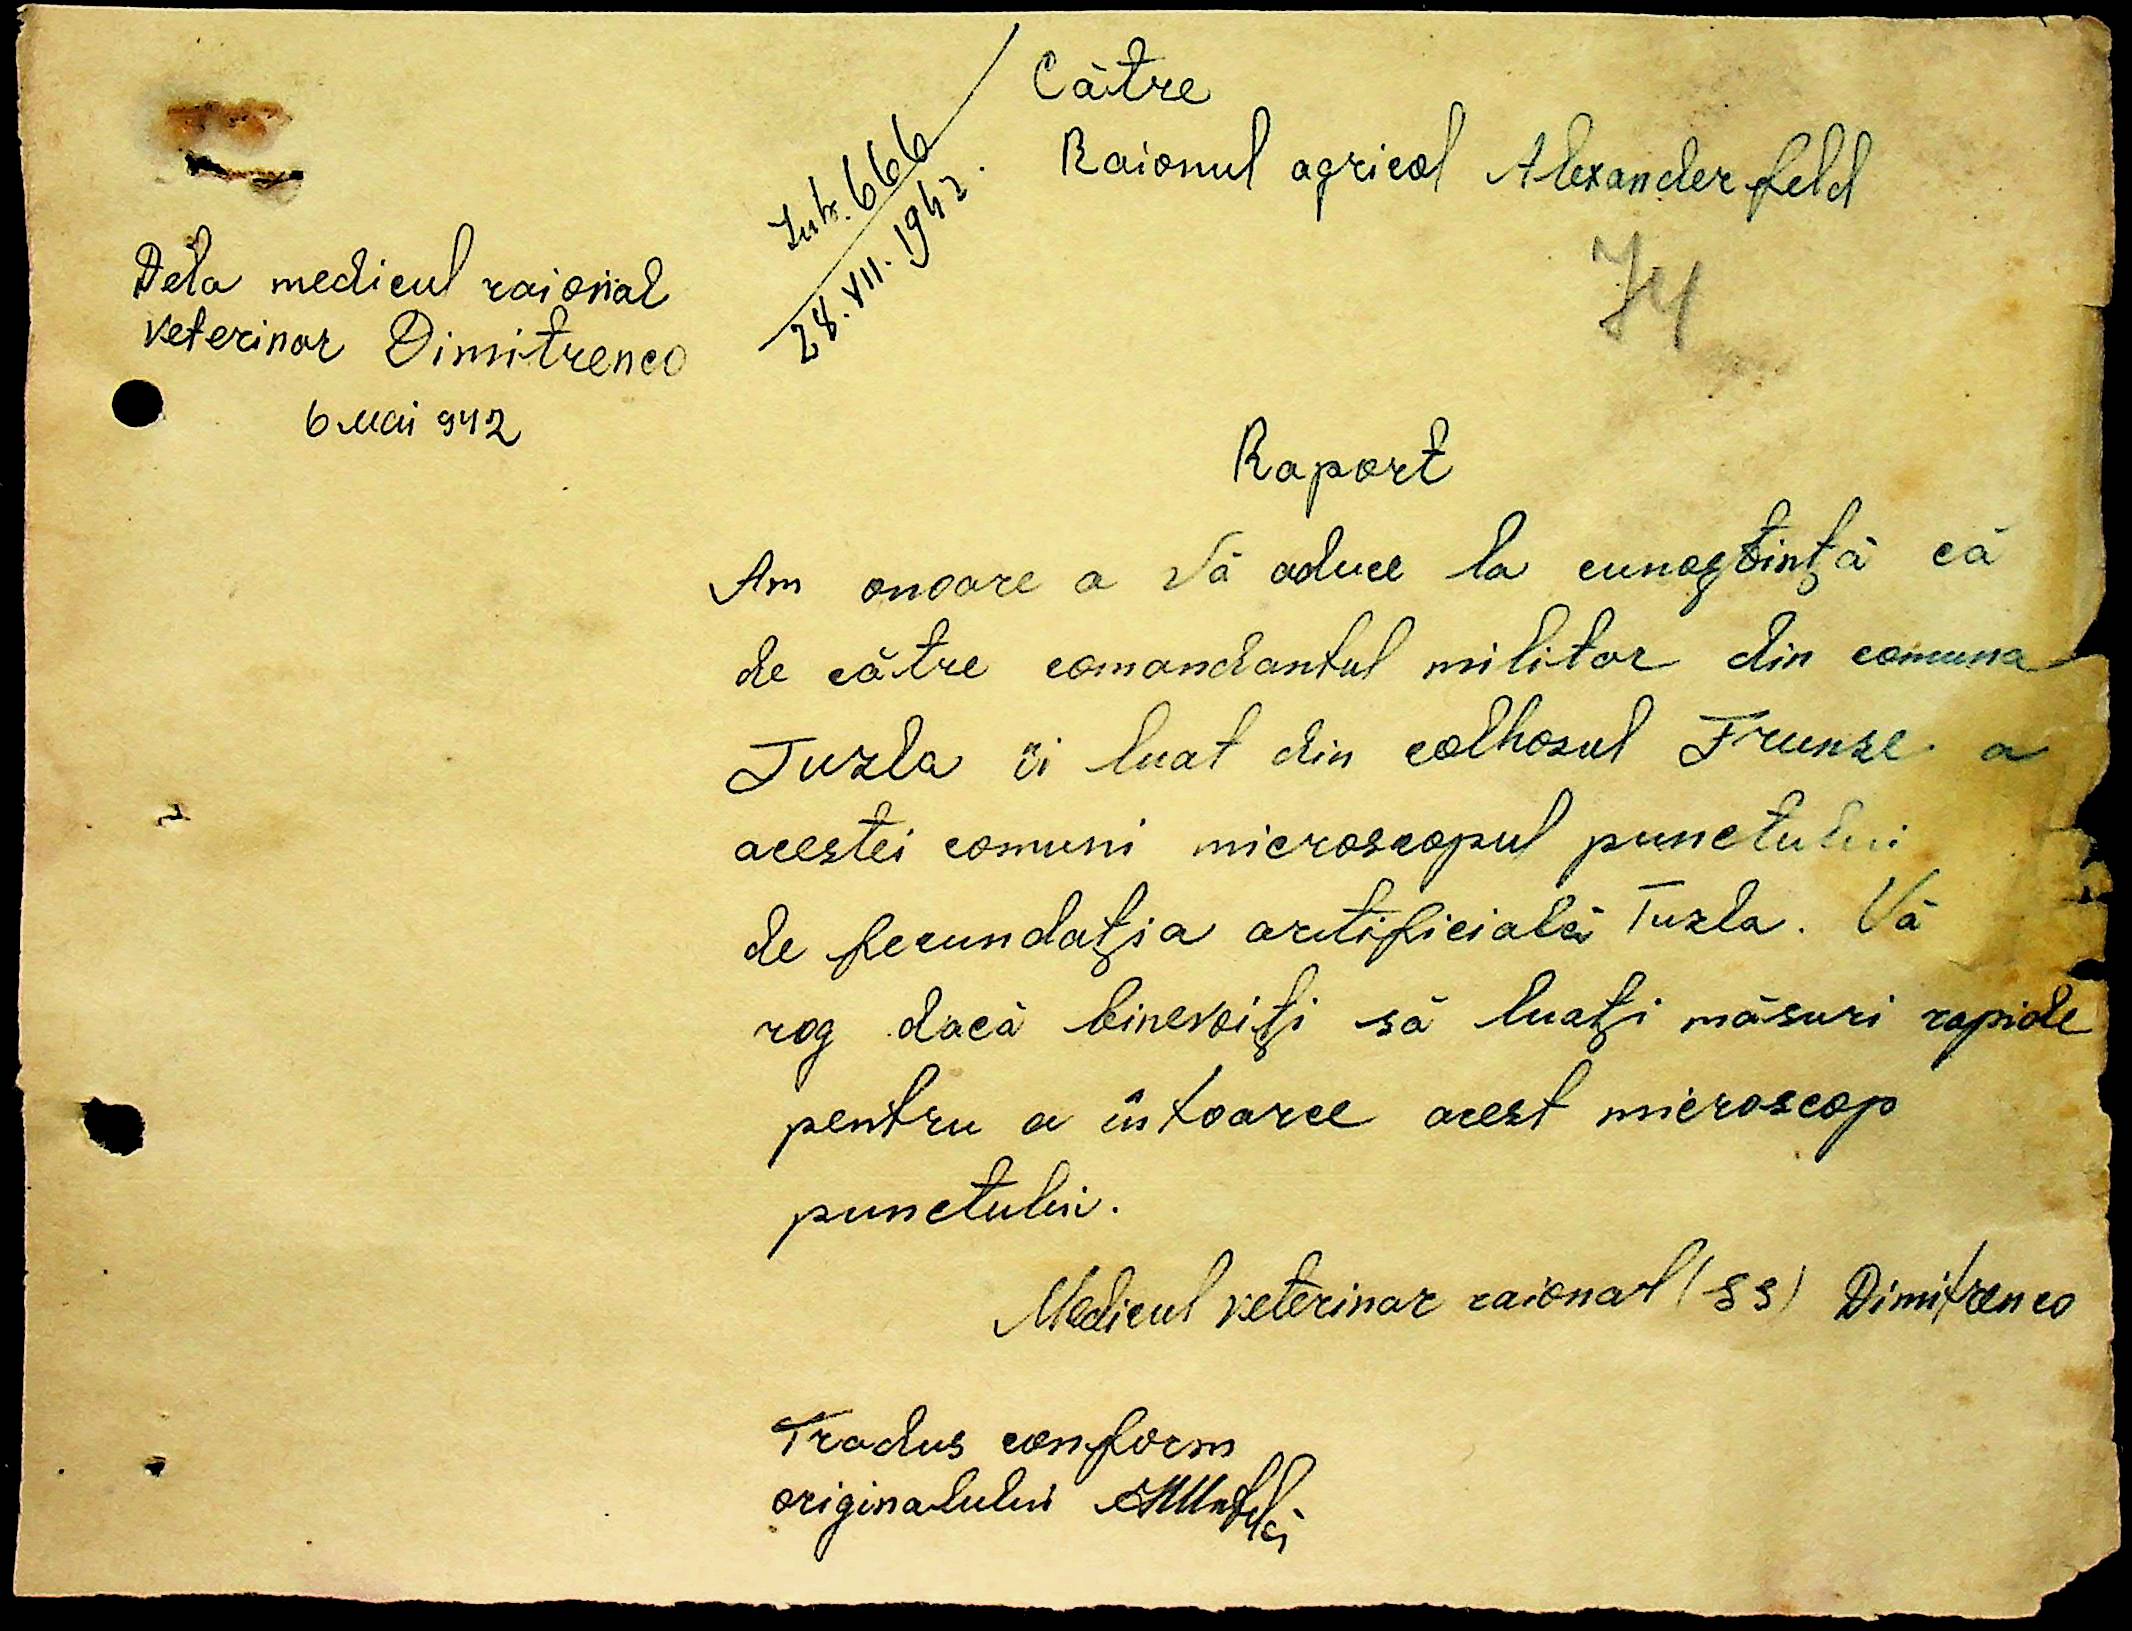 Către
Raionul agricol Alexanderfeld
Intr. 666
28.VII.1942.
74
Dela medicul raional
veterinar Dimitrenco
6 Mai 942
Raport
Am onoare a Vă aduce la cunoştinţă că
de către comandantul militar din comuna
Tuzla îi luat din colhozul Frunze a
acestei comuni microscopul punctului
de fecundaţia artificială Tuzla. Vă
rog dacă binevoiţi să luaţi măsuri rapide
pentru a întoarce acest microscop
punctului.
Medicul veterinar raional (ss) Dimitrenco
Tradus conform
originalului